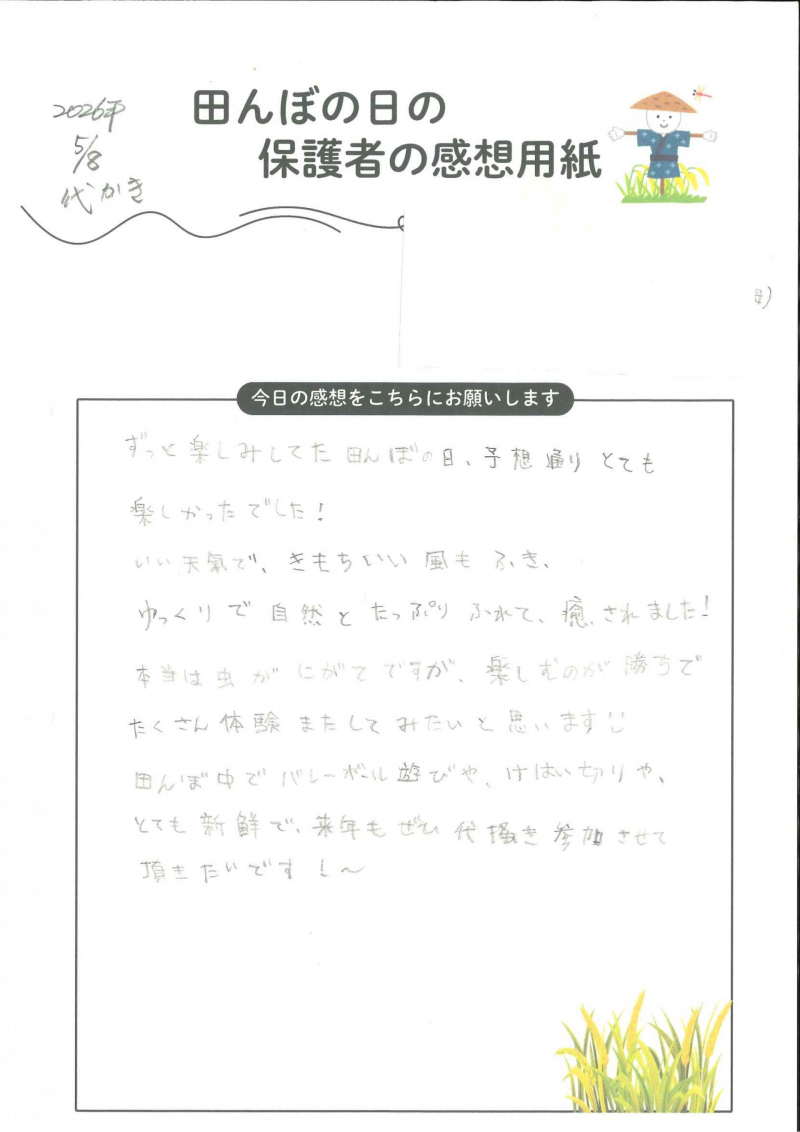 2026年
5/8
代かき
田んぼの日の
保護者の感想用紙
今日の感想をこちらにお願いします
ずっと楽しみしてた田んぼの日、予想通りとても
楽しかったでした!
いい天氣で、きもちいい風もふき、
ゆっくりで自然とたっぷりふれて、癒されました!
本当は虫がにがてですが、楽しむのが勝ちで
たくさん体験またしてみたいと思います
田んぼ中でバレーボール遊びや、けはい切りや、
とても新鮮で、来年もぜひ代掻き参加させて
頂きたいです!〜